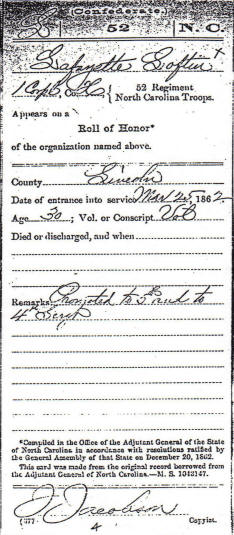 (Confederate.)
L 52 N. C.
Lafayette Loftin
1 Corp, Co. 52 Regiment
North Carolina Troops.
Appears on a
Roll of Honor*
of the organization named above.
County Lincoln
Date of entrance into service Mar 25, 1862.
Age 30; Vol. or Conscript Vol
Died or discharged, and when
Remarks: Promoted to 5" and to
4" Serg't
*Compiled in the Office of the Adjutant General of the State
of North Carolina in accordance with resolutions ratified by
the General Assembly of that State on December 20, 1862.
This card was made from the original record borrowed from
the Adjutant General of North Carolina.—M. S. 1043147.
J. Jacobson
(377) Copyist.
4